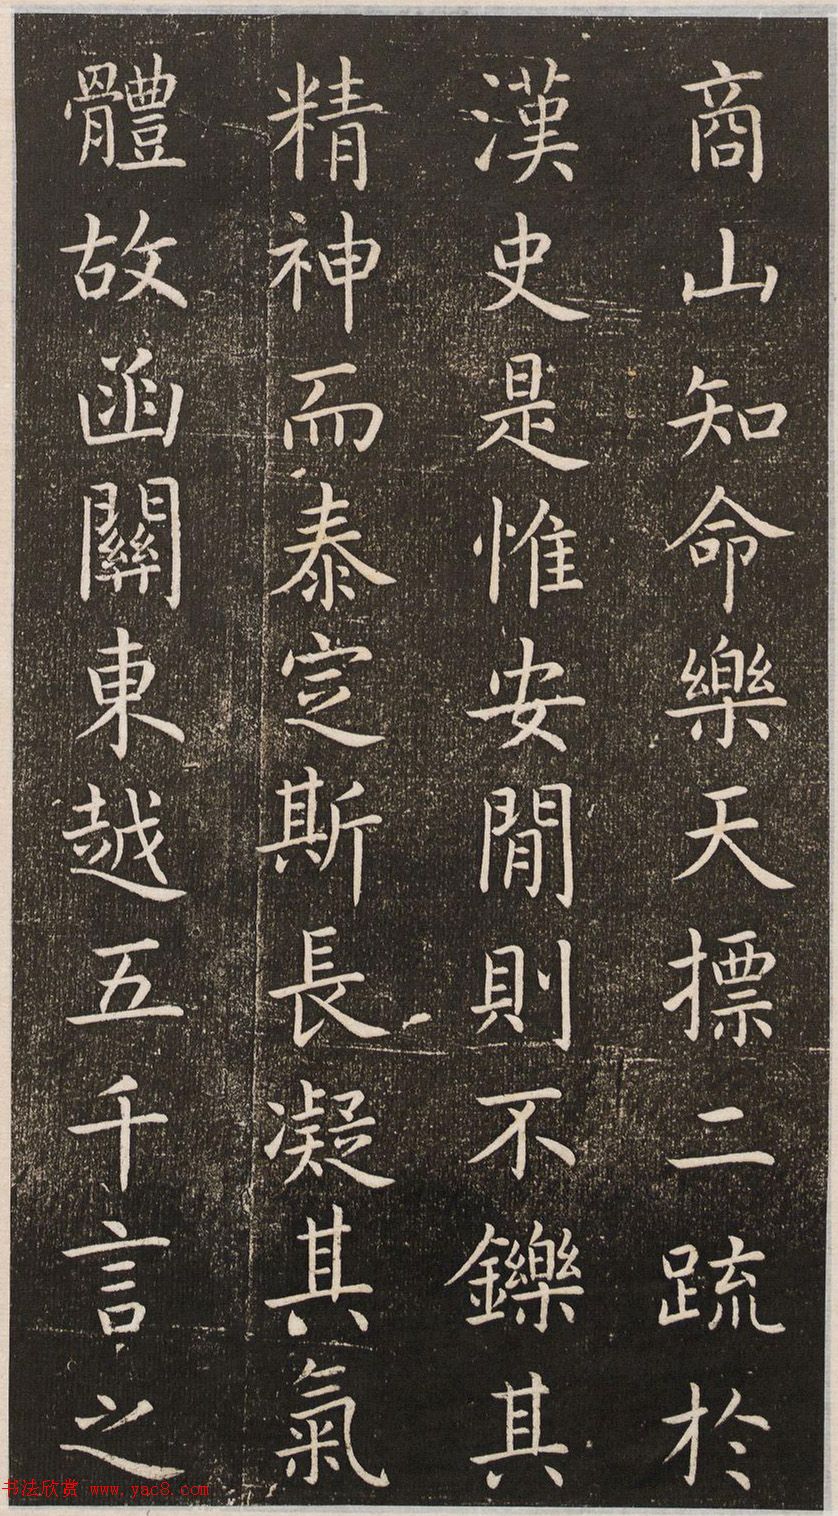 商山知命樂天摽二䟽於
漢史是惟安閒則不鑠其
精神而泰定斯長凝其氣
體故函關東越五千言之
书法欣赏 www.yac8.com